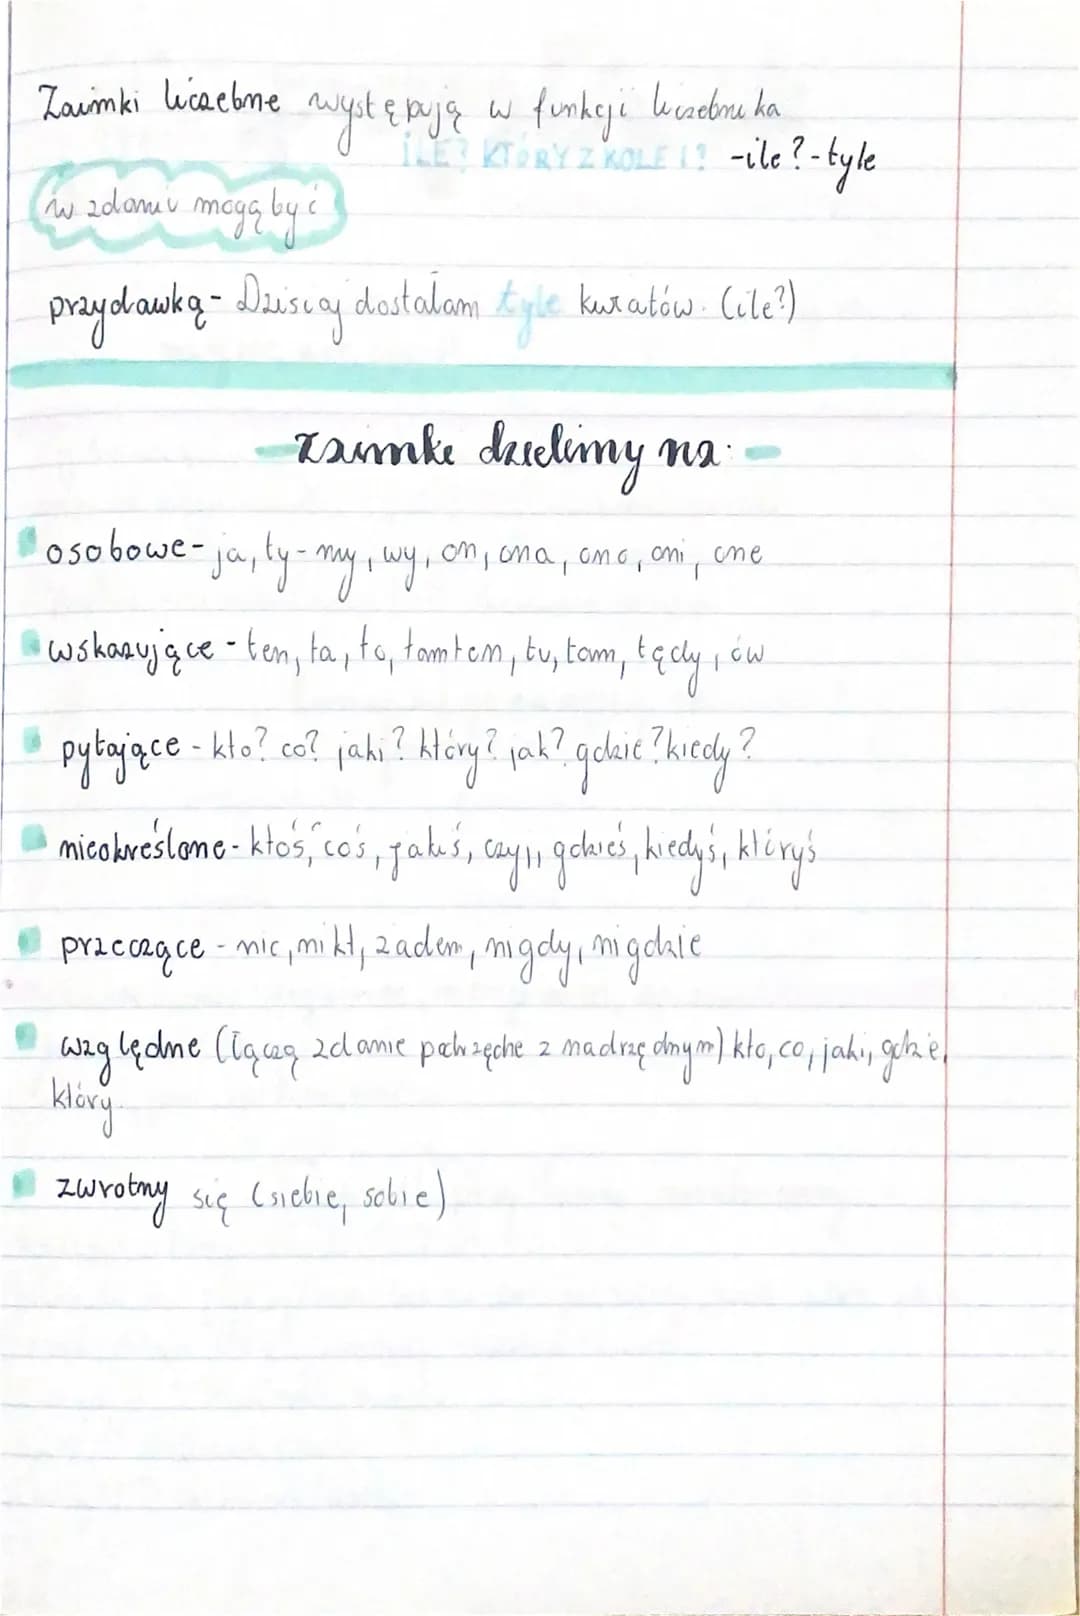 Zaimki liczebne występują w funkcji liczebnika
ILE? KTÓRY Z KOLEI? -ile?-tyle
w zdaniu mogą być
przydawką- Dzisiaj dostałam tyle kwiatów. (ile?)
Zaimki dzielimy na:
osobowe- ja, ty- my, wy, on, ona, ono, oni, one
wskazujące - ten, ta, to, tamten, tu, tam, tędy, ów
pytające - kto? co? jaki? który? jak? gdzie? kiedy?
nieokreślone- ktoś, coś, jakiś, czyjś, gdzieś, kiedyś, któryś
przeczące - nic, nikt, żaden, nigdy, nigdzie
względne (łączą zdanie podrzędne z nadrzędnym) kto, co, jaki, gdzie,
który.
zwrotny się (siebie, sobie)